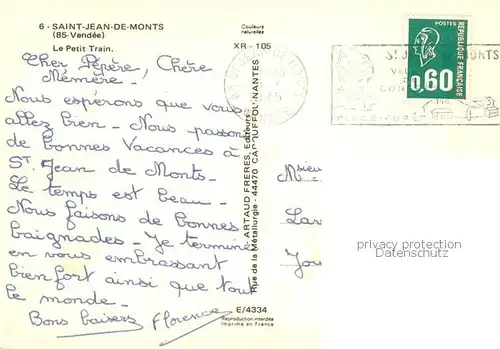 6 - SAINT-JEAN-DE-MONTS
(85-Vendée)
Le Petit Train.
Couleurs
naturelles
XR - 105
Cher Pépère, Chère
Mémère -
Nous espérons que vous
allez bien - Nous passons
de bonnes Vacances à
St Jean de Monts -
Le temps est beau -
Nous faisons de bonnes
baignades - Je termine
en vous embrassant
bien fort ainsi que tout
le monde -
Bons baisers Florence
ARTAUD FRERES, Editeurs
Rue de la Métallurgie - 44470 CARQUEFOU-NANTES
E/4334
Reproduction interdite
Imprimé en France
POSTES
REPUBLIQUE FRANÇAISE
0,60
MONTS
PLAGE-FORÊT
privacy protection
Datenschutz